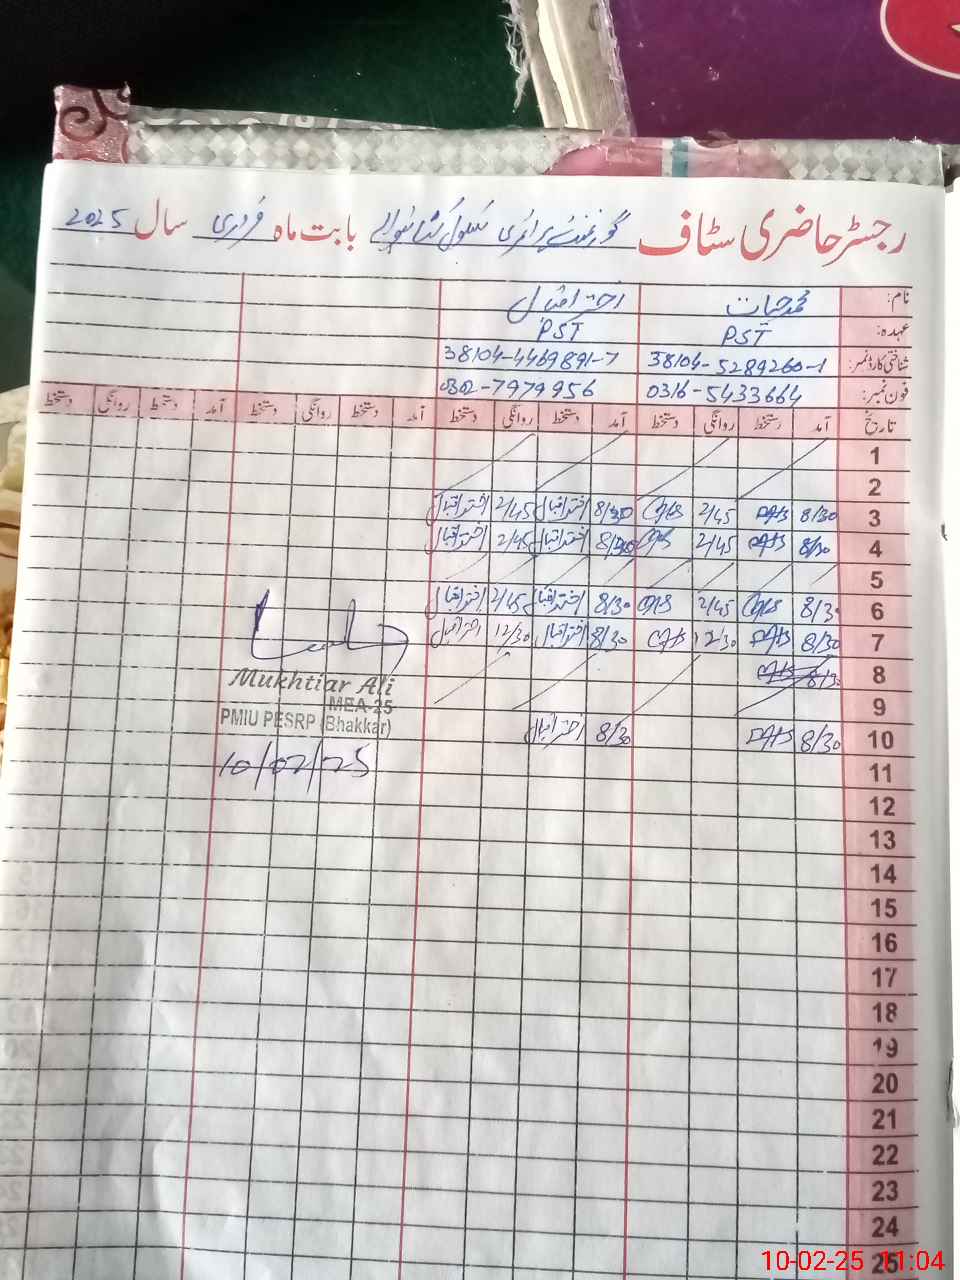 رجسٹر حاضری سٹاف گورنمنٹ پرائمری سکول بابت ماہ فروری سال 2025
نام: محمد حیات اختر اقبال
عہدہ: PST PST
شناختی کارڈ نمبر: 38104-5289260-1 38104-4469891-7
فون نمبر: 0316-5433664 0302-7979956
تاریخ آمد دستخط روانگی دستخط آمد دستخط روانگی دستخط آمد دستخط روانگی دستخط آمد دستخط روانگی دستخط
1
2
3 8/30 2/45 8/30 اختر اقبال 2/45 اختر اقبال
4 8/30 2/45 8/30 اختر اقبال 2/45 اختر اقبال
5
6 8/30 2/45 8/30 اختر اقبال 2/45 اختر اقبال
7 8/30 12/30 8/30 اختر اقبال 12/30 اختر اقبال
8 8/30
Mukhtiar Ali
9
MEA-25
PMIU PESRP (Bhakkar)
10 8/30 8/30 اختر اقبال
10/02/25
11
12
13
14
15
16
17
18
19
20
21
22
23
24
25
10-02-25 11:04